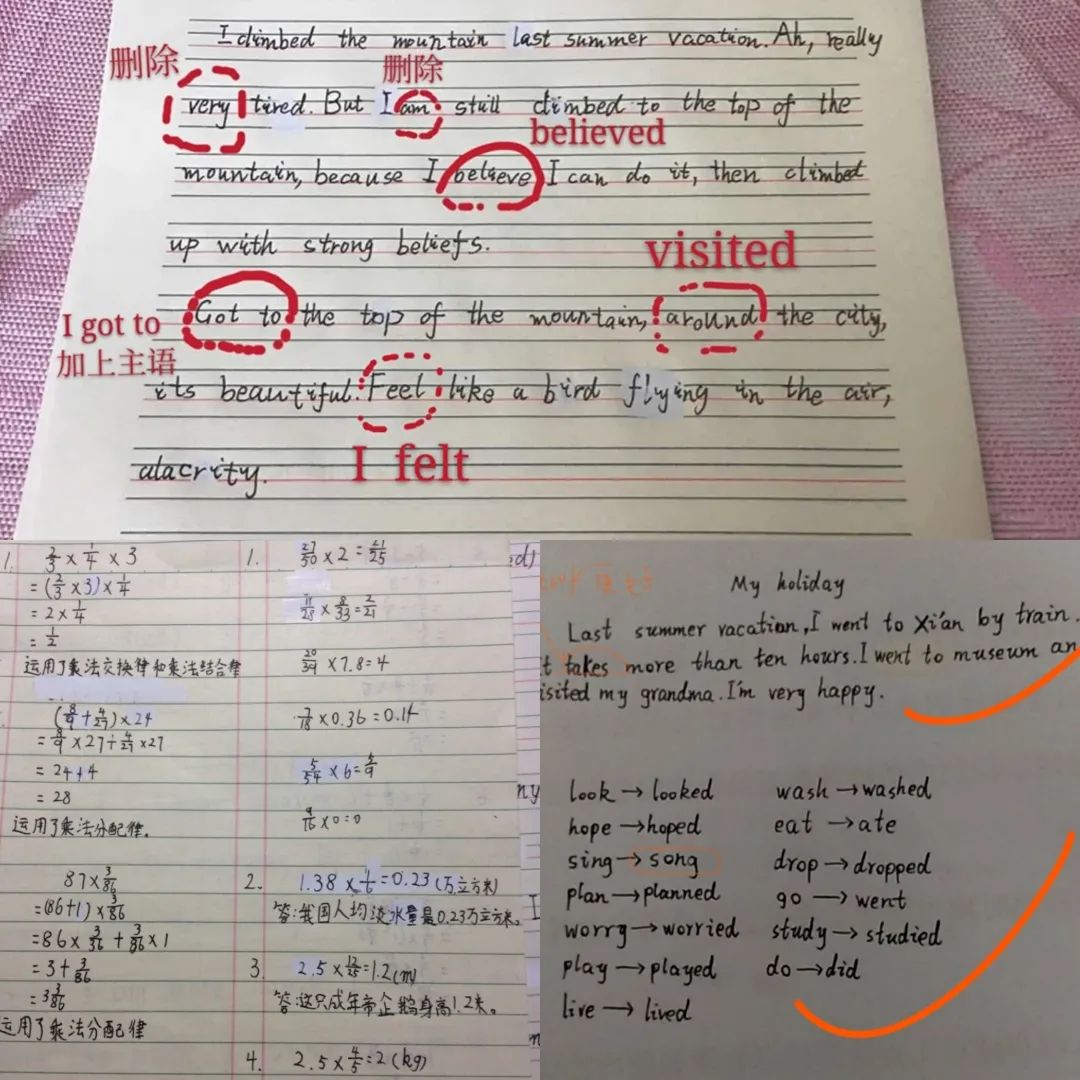 I climbed the mountain last summer vacation. Ah, really
删除
删除
very tired. But I am still climbed to the top of the
believed
mountain, because I believe I can do it, then climbed
up with strong beliefs.
visited
Got to the top of the mountain, around the city,
I got to
加上主语
its beautiful. Feel like a bird flying in the air,
I felt
alacrity.
1. 2/3 × 1/4 × 3
= (2/3 × 3) × 1/4
= 2 × 1/4
= 1/2
运用了乘法交换律和乘法结合律
(8/9 + 4/27) × 27
= 8/9 × 27 + 4/27 × 27
= 24 + 4
= 28
运用了乘法分配律.
87 × 3/86
= (86+1) × 3/86
= 86 × 3/86 + 3/86 × 1
= 3 + 3/86
= 3 3/86
运用了乘法分配律
1. 27/50 × 2 = 21/25
11/28 × 8/33 = 2/21
20/39 × 7.8 = 4
7/18 × 0.36 = 0.14
5/54 × 6 = 5/9
9/16 × 0 = 0
2. 1.38 × 1/6 = 0.23 (万立方米)
答:我国人均淡水量是0.23万立方米。
3. 2.5 × 12/25 = 1.2 (m)
答:这只成年帝企鹅身高1.2米。
4. 2.5 × 4/5 = 2 (kg)
My holiday
Last summer vacation, I went to Xi'an by train.
t takes more than ten hours. I went to museum an
isited my grandma. I'm very happy.
look → looked
wash → washed
hope → hoped
eat → ate
sing → song
drop → dropped
plan → planned
go → went
worry → worried
study → studied
play → played
do → did
live → lived